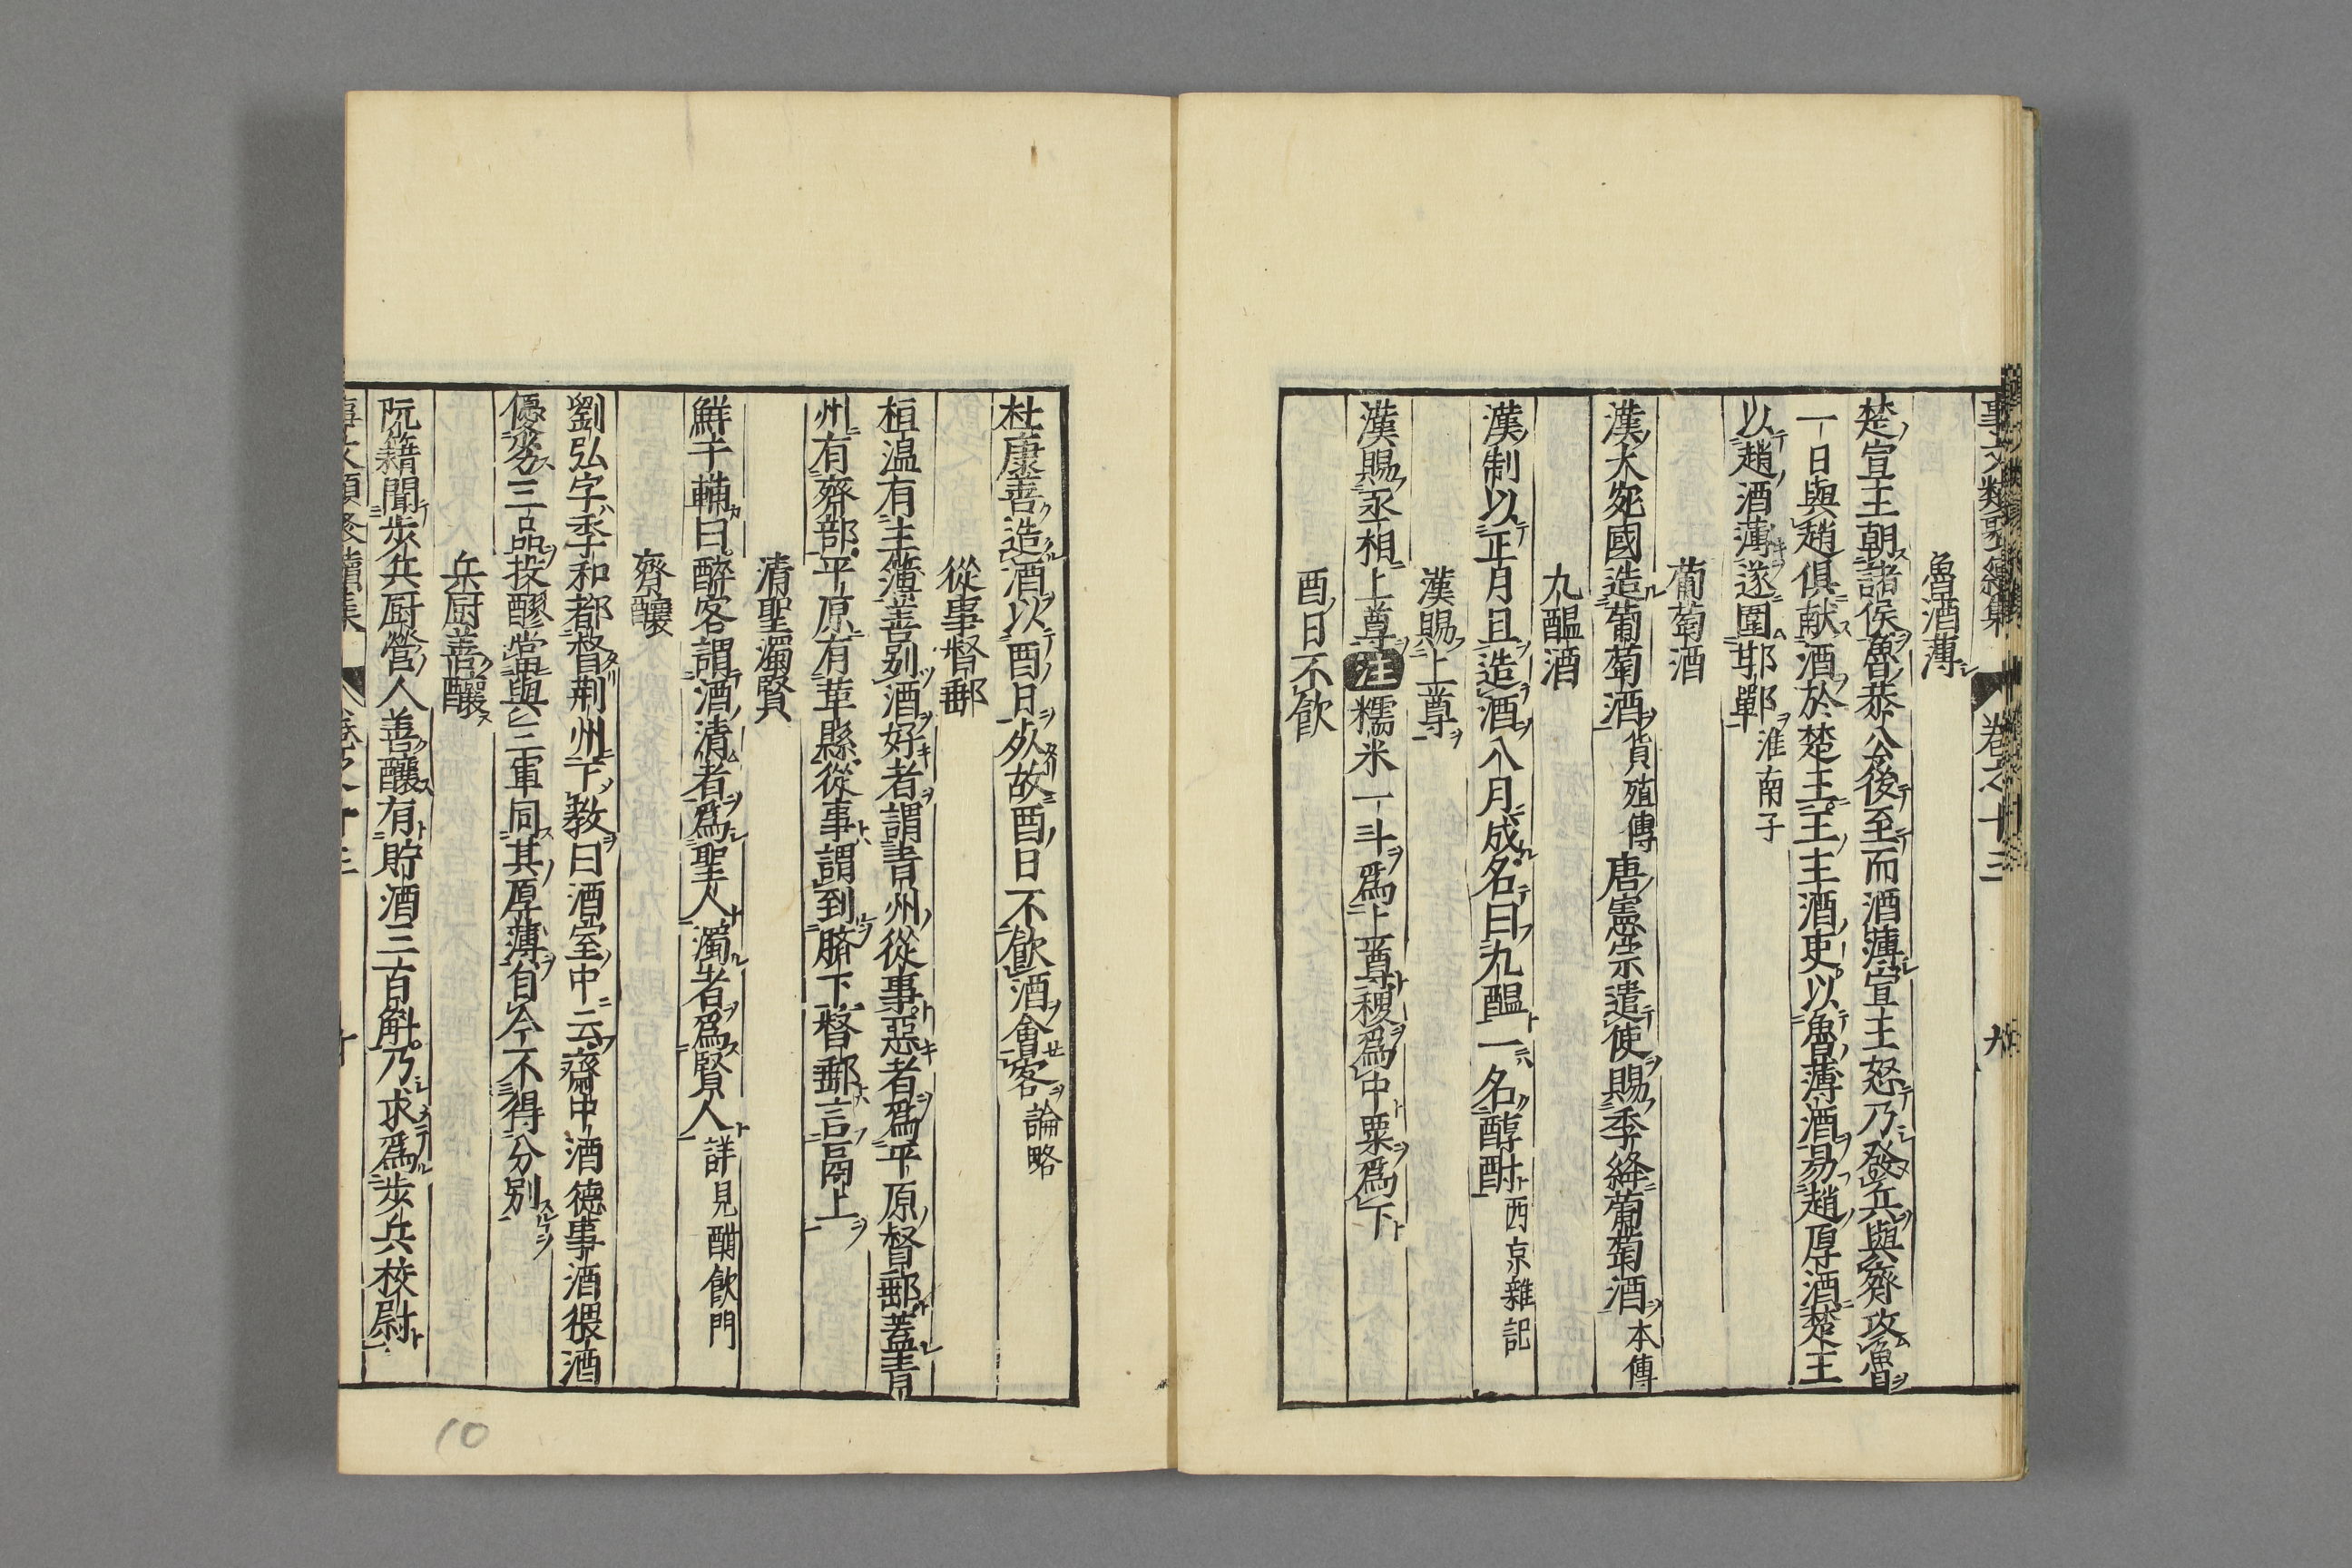 事文類聚續集 卷之十三
魯酒薄
楚宣王朝諸侯魯恭公後至而酒薄宣王怒乃發兵與齊攻魯
一曰與趙俱献酒於楚王王主酒吏以魯薄酒易趙厚酒楚王
以趙酒薄遂圍邯鄲淮南子
葡萄酒
漢大宛國造葡萄酒貨殖傳唐憲宗遣使賜李絳葡萄酒本傳
九醞酒
漢制以正月旦造酒八月成名曰九醞一名醇酎西京雜記
漢賜上尊
漢賜丞相上尊注糯米一斗爲上尊稷爲中粟爲下
酉日不飲
杜康善造酒以酉日死故酉日不飲酒會客論略
從事督郵
桓温有主簿善别酒好者謂青州從事惡者爲平原督郵蓋青
州有齊部平原有革縣從事謂到臍下督郵言鬲上
清聖濁賢
鮮于輔曰醉客謂酒清者爲聖人濁者爲賢人詳見酣飲門
齊釀
劉弘字季和都督荆州下教曰酒室中云齋中酒德事酒猥酒
優劣三品投醪當與三軍同其厚薄自今不得分别
兵厨善釀
阮籍聞歩兵厨營人善釀有貯酒三百斛乃求爲歩兵校尉
10